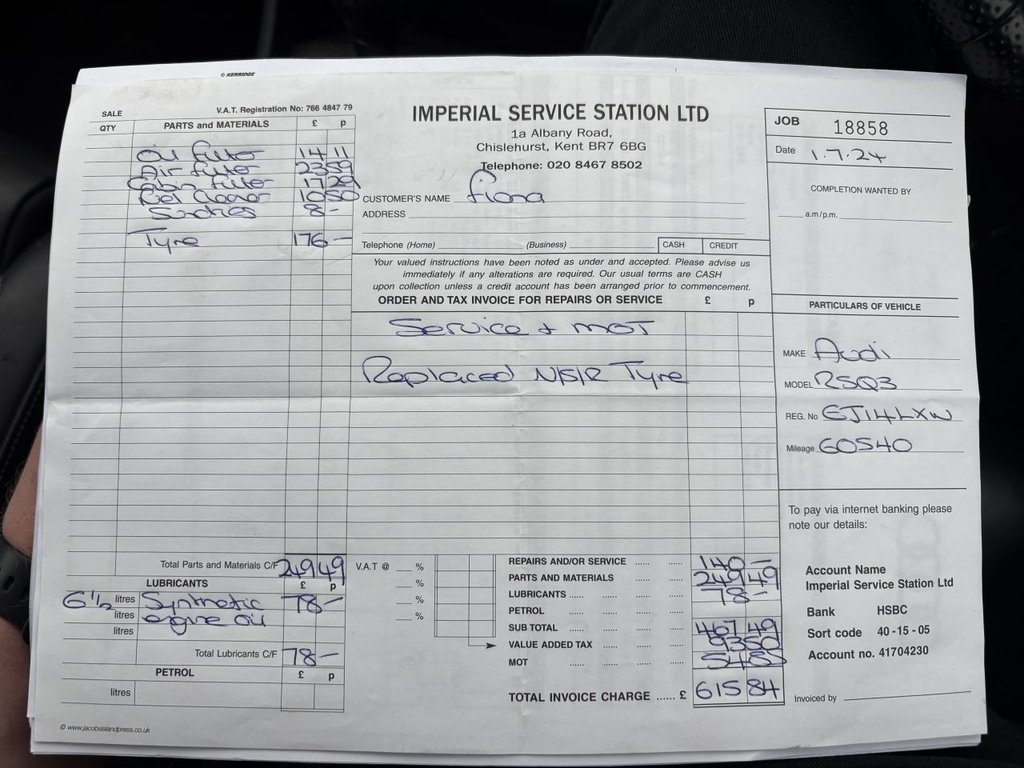 © KERRIDGE
SALE
V.A.T. Registration No: 766 4847 79
QTY PARTS and MATERIALS £ p
Oil filter 14 11
Air filter 23 59
Cabin filter 17 29
Fuel Cleaner 10 50
Sundries 8 -
Tyre 176 -
Total Parts and Materials C/F 249 49
LUBRICANTS £ p
6 1/2 litres Synthetic 78 -
litres engine oil
litres
Total Lubricants C/F 78 -
PETROL £ p
litres
© www.jacobsislandpress.co.uk
IMPERIAL SERVICE STATION LTD
1a Albany Road,
Chislehurst, Kent BR7 6BG
Telephone: 020 8467 8502
CUSTOMER'S NAME Fiona
ADDRESS
Telephone (Home) (Business) CASH CREDIT
Your valued instructions have been noted as under and accepted. Please advise us
immediately if any alterations are required. Our usual terms are CASH
upon collection unless a credit account has been arranged prior to commencement.
ORDER AND TAX INVOICE FOR REPAIRS OR SERVICE £ p
Service + MOT
Replaced N/S/R Tyre
V.A.T @ %
%
%
%
REPAIRS AND/OR SERVICE 140 -
PARTS AND MATERIALS 249 49
LUBRICANTS 78 -
PETROL
SUB TOTAL 467 49
VALUE ADDED TAX 93 50
MOT 54 85
TOTAL INVOICE CHARGE ...... £ 615 84
JOB 18858
Date 1.7.24
COMPLETION WANTED BY
a.m/p.m.
PARTICULARS OF VEHICLE
MAKE Audi
MODEL RSQ3
REG. No EJ14LXW
Mileage 60540
To pay via internet banking please
note our details:
Account Name
Imperial Service Station Ltd
Bank HSBC
Sort code 40-15-05
Account no. 41704230
Invoiced by